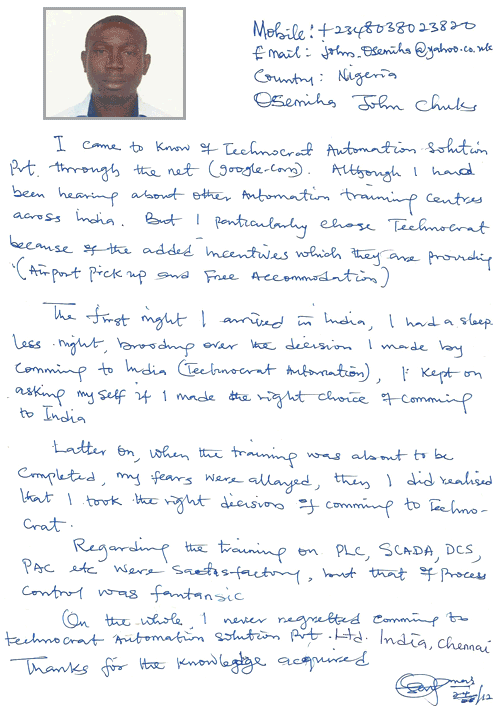 Mobile: +2348038023820
Email: johns_osemiha@yahoo.co.uk
Country: Nigeria
Osemiha John Chuks
I came to know of Technocrat Automation solution
Pvt. through the net (google.com). Although I had
been hearing about other Automation training centres
across India. But I particularly chose Technocrat
because of the added incentives which they are providing
(Airport Pick up and Free Accommodation)
The first night I arrived in India, I had a sleep
less night, brooding over the decision I made by
Comming to India (Technocrat Automation), I kept on
asking my self if I made the right choice of comming
to India
Latter on, when the training was about to be
Completed, my fears were allayed, then I did realised
that I took the right decision of comming to Techno-
crat.
Regarding the training on PLC, SCADA, DCS,
PAC etc were sactisfactory, but that of Process
Control was fantansic
On the whole, I never regretted comming to
technocrat Automation solution Pvt. Ltd. India, Chennai
Thanks for the knowledge acquired